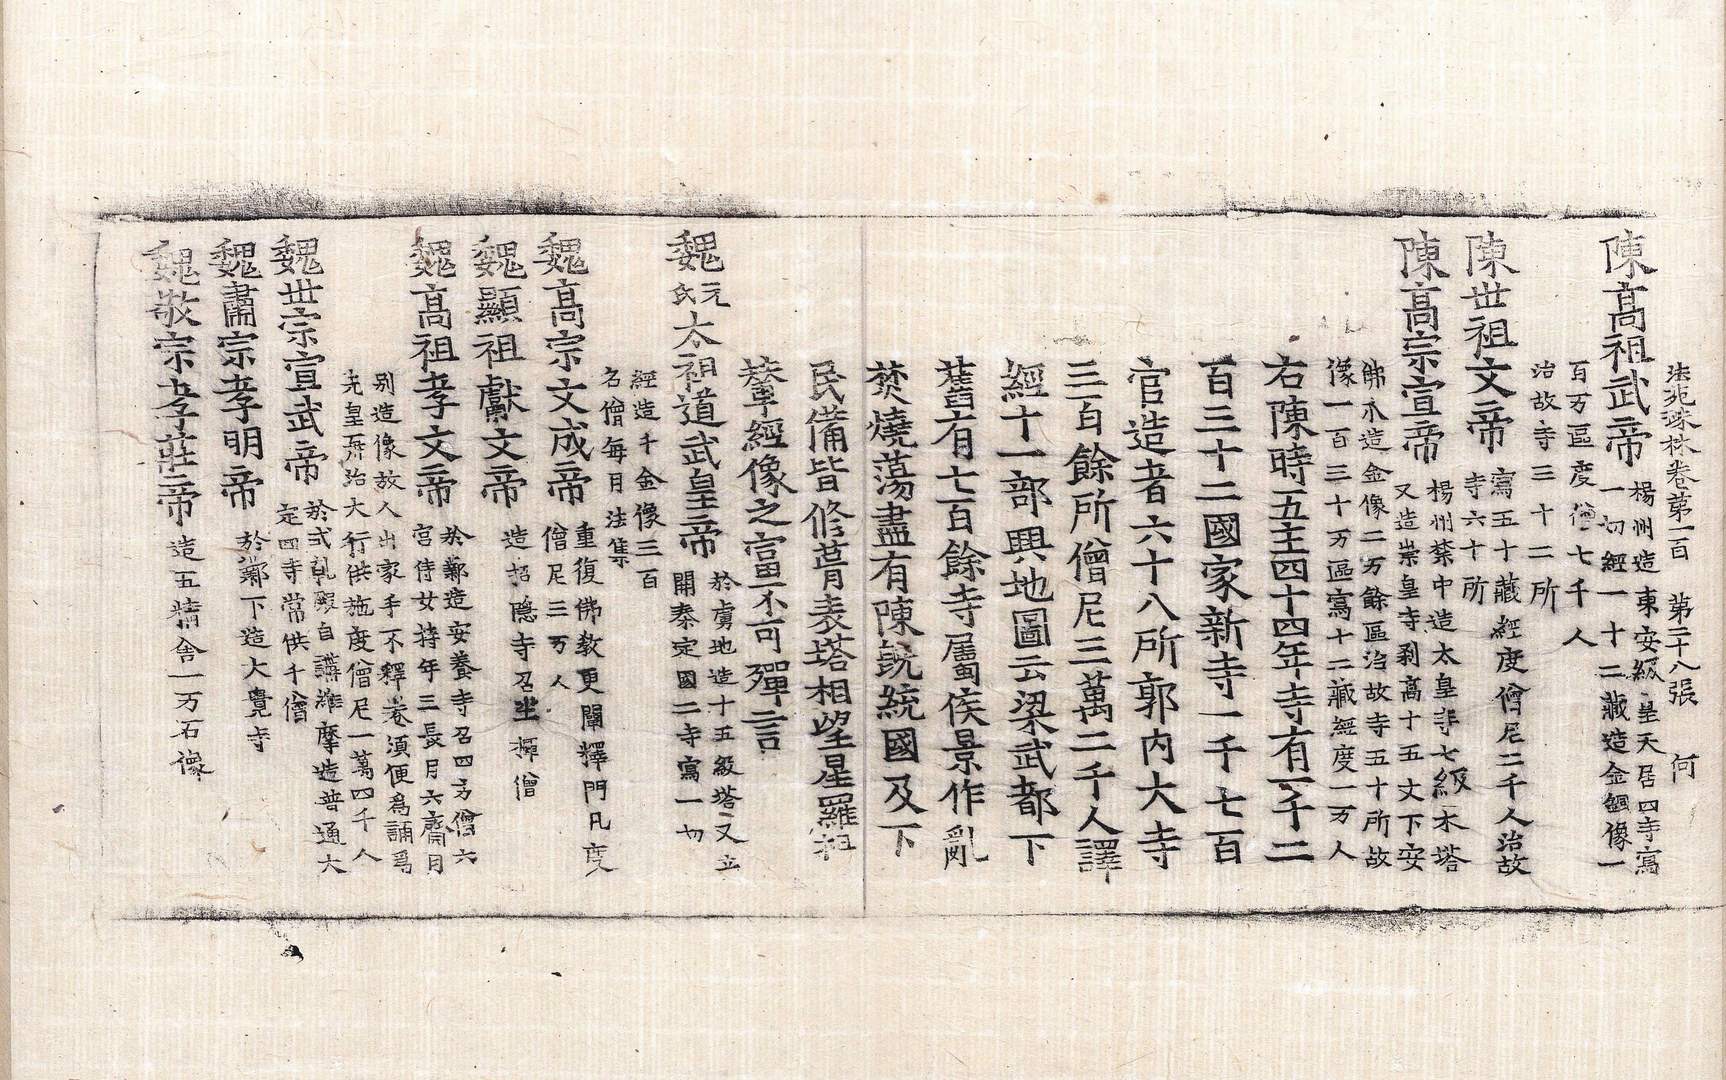 法苑珠林卷第一百 第二十八張 何
陳高祖武帝
楊州造東安級皇天居四寺寫
一切經一十二藏造金銅像一
百万區度僧七千人
治故寺三十二所
陳世祖文帝
寫五十藏經度僧尼二千人治故
寺六十所
陳高宗宣帝
楊州禁中造太皇寺七級木塔
又造崇皇寺剎高十五丈下安
佛爪造金像二万餘區治故寺五十所故
像一百三十万區寫十二藏經度一万人
右陳時五主四十四年寺有一千二
百三十二國家新寺一千七百
官造者六十八所郭內大寺
三百餘所僧尼三萬二千人譯
經十一部輿地圖云梁武都下
舊有七百餘寺屬侯景作亂
焚燒蕩盡有陳旣統國及下
民備皆修葺表塔相望星羅
輦經像之富不可殫言
魏元氏太祖道武皇帝
於虜地造十五級塔又立
開泰定國二寺寫一切
經造千金像三百
名僧每月法集
魏高宗文成帝
重復佛教更闡釋門凡度
僧尼三万人
魏顯祖獻文帝
造招隱寺召坐禪僧
魏高祖孝文帝
於鄴造安養寺召四方僧六
宮侍女持年三長月六齋日
別造像故人出家手不釋卷須便爲誦爲
先皇再治大行供施度僧尼一萬四千人
魏世宗宣武帝
於式乾殿自講維摩造普通大
定四寺常供千僧
魏肅宗孝明帝
於鄴下造大覺寺
魏敬宗孝莊帝
造五精舍一万石像